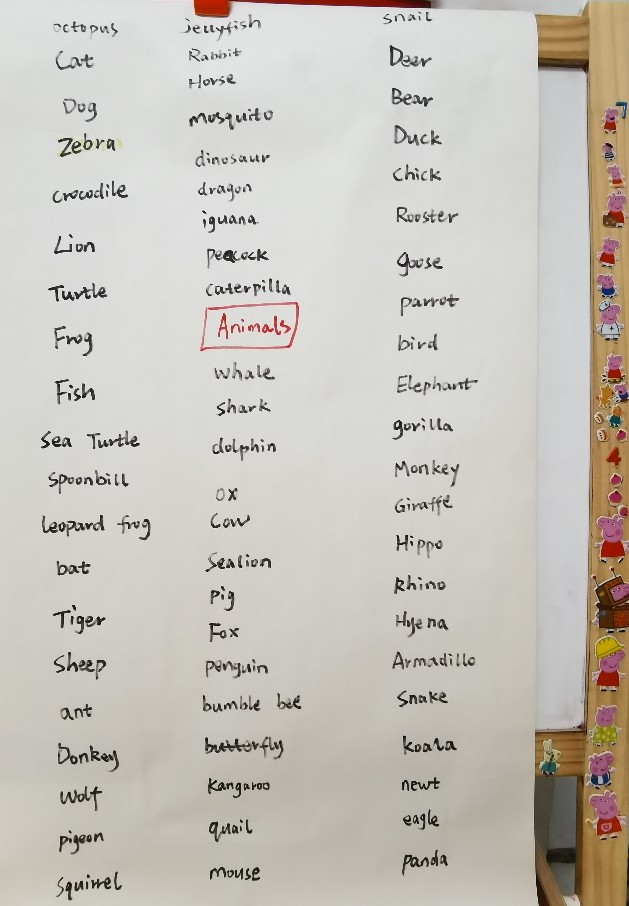 octopus
Cat
Dog
Zebra
crocodile
Lion
Turtle
Frog
Fish
Sea Turtle
Spoonbill
leopard frog
bat
Tiger
Sheep
ant
Donkey
Wolf
pigeon
Squirrel
jellyfish
Rabbit
Horse
mosquito
dinosaur
dragon
iguana
peacock
caterpilla
Animals
whale
shark
dolphin
ox
Cow
Sealion
pig
Fox
penguin
bumble bee
butterfly
Kangaroo
quail
mouse
snail
Deer
Bear
Duck
Chick
Rooster
goose
parrot
bird
Elephant
gorilla
Monkey
Giraffe
Hippo
Rhino
Hyena
Armadillo
Snake
koala
newt
eagle
panda